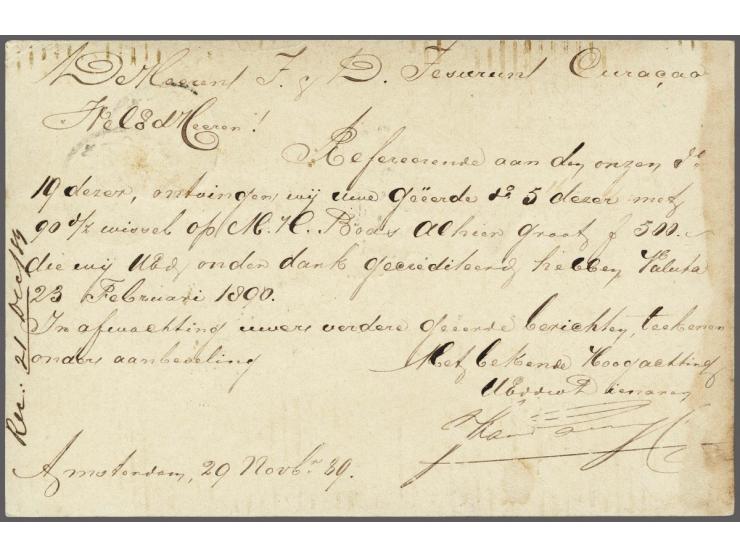 De Heeren J. & D. Jesurun Curaçao
WelEd Heeren!
Refereerende aan den onzen dd
19 dezer, ontvingen wij uwe geëerde do 5 dezer met
90 d/z wissel op M. H. Boas alhier groot f 500.-
die wij UEd onder dank gecrediteerd hebben Valuta
23 Februari 1890.
In afwachting uwer verdere geëerde berichten, teekenen
onder aanbeveling Met bekende Hoogachting
UEddwd dienaren
Amsterdam, 29 Novbr 89.
Rec: 21 Dec/89